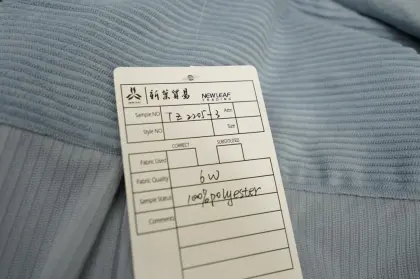 新葉貿易 NEW LEAF
TRADING
Sample NO TZ2205-3 Attn
Style NO Size
CORRECT SUBSTITUTE
Fabric Used
Fabric Quality 6W
Sample Status 100% polyester
Comments